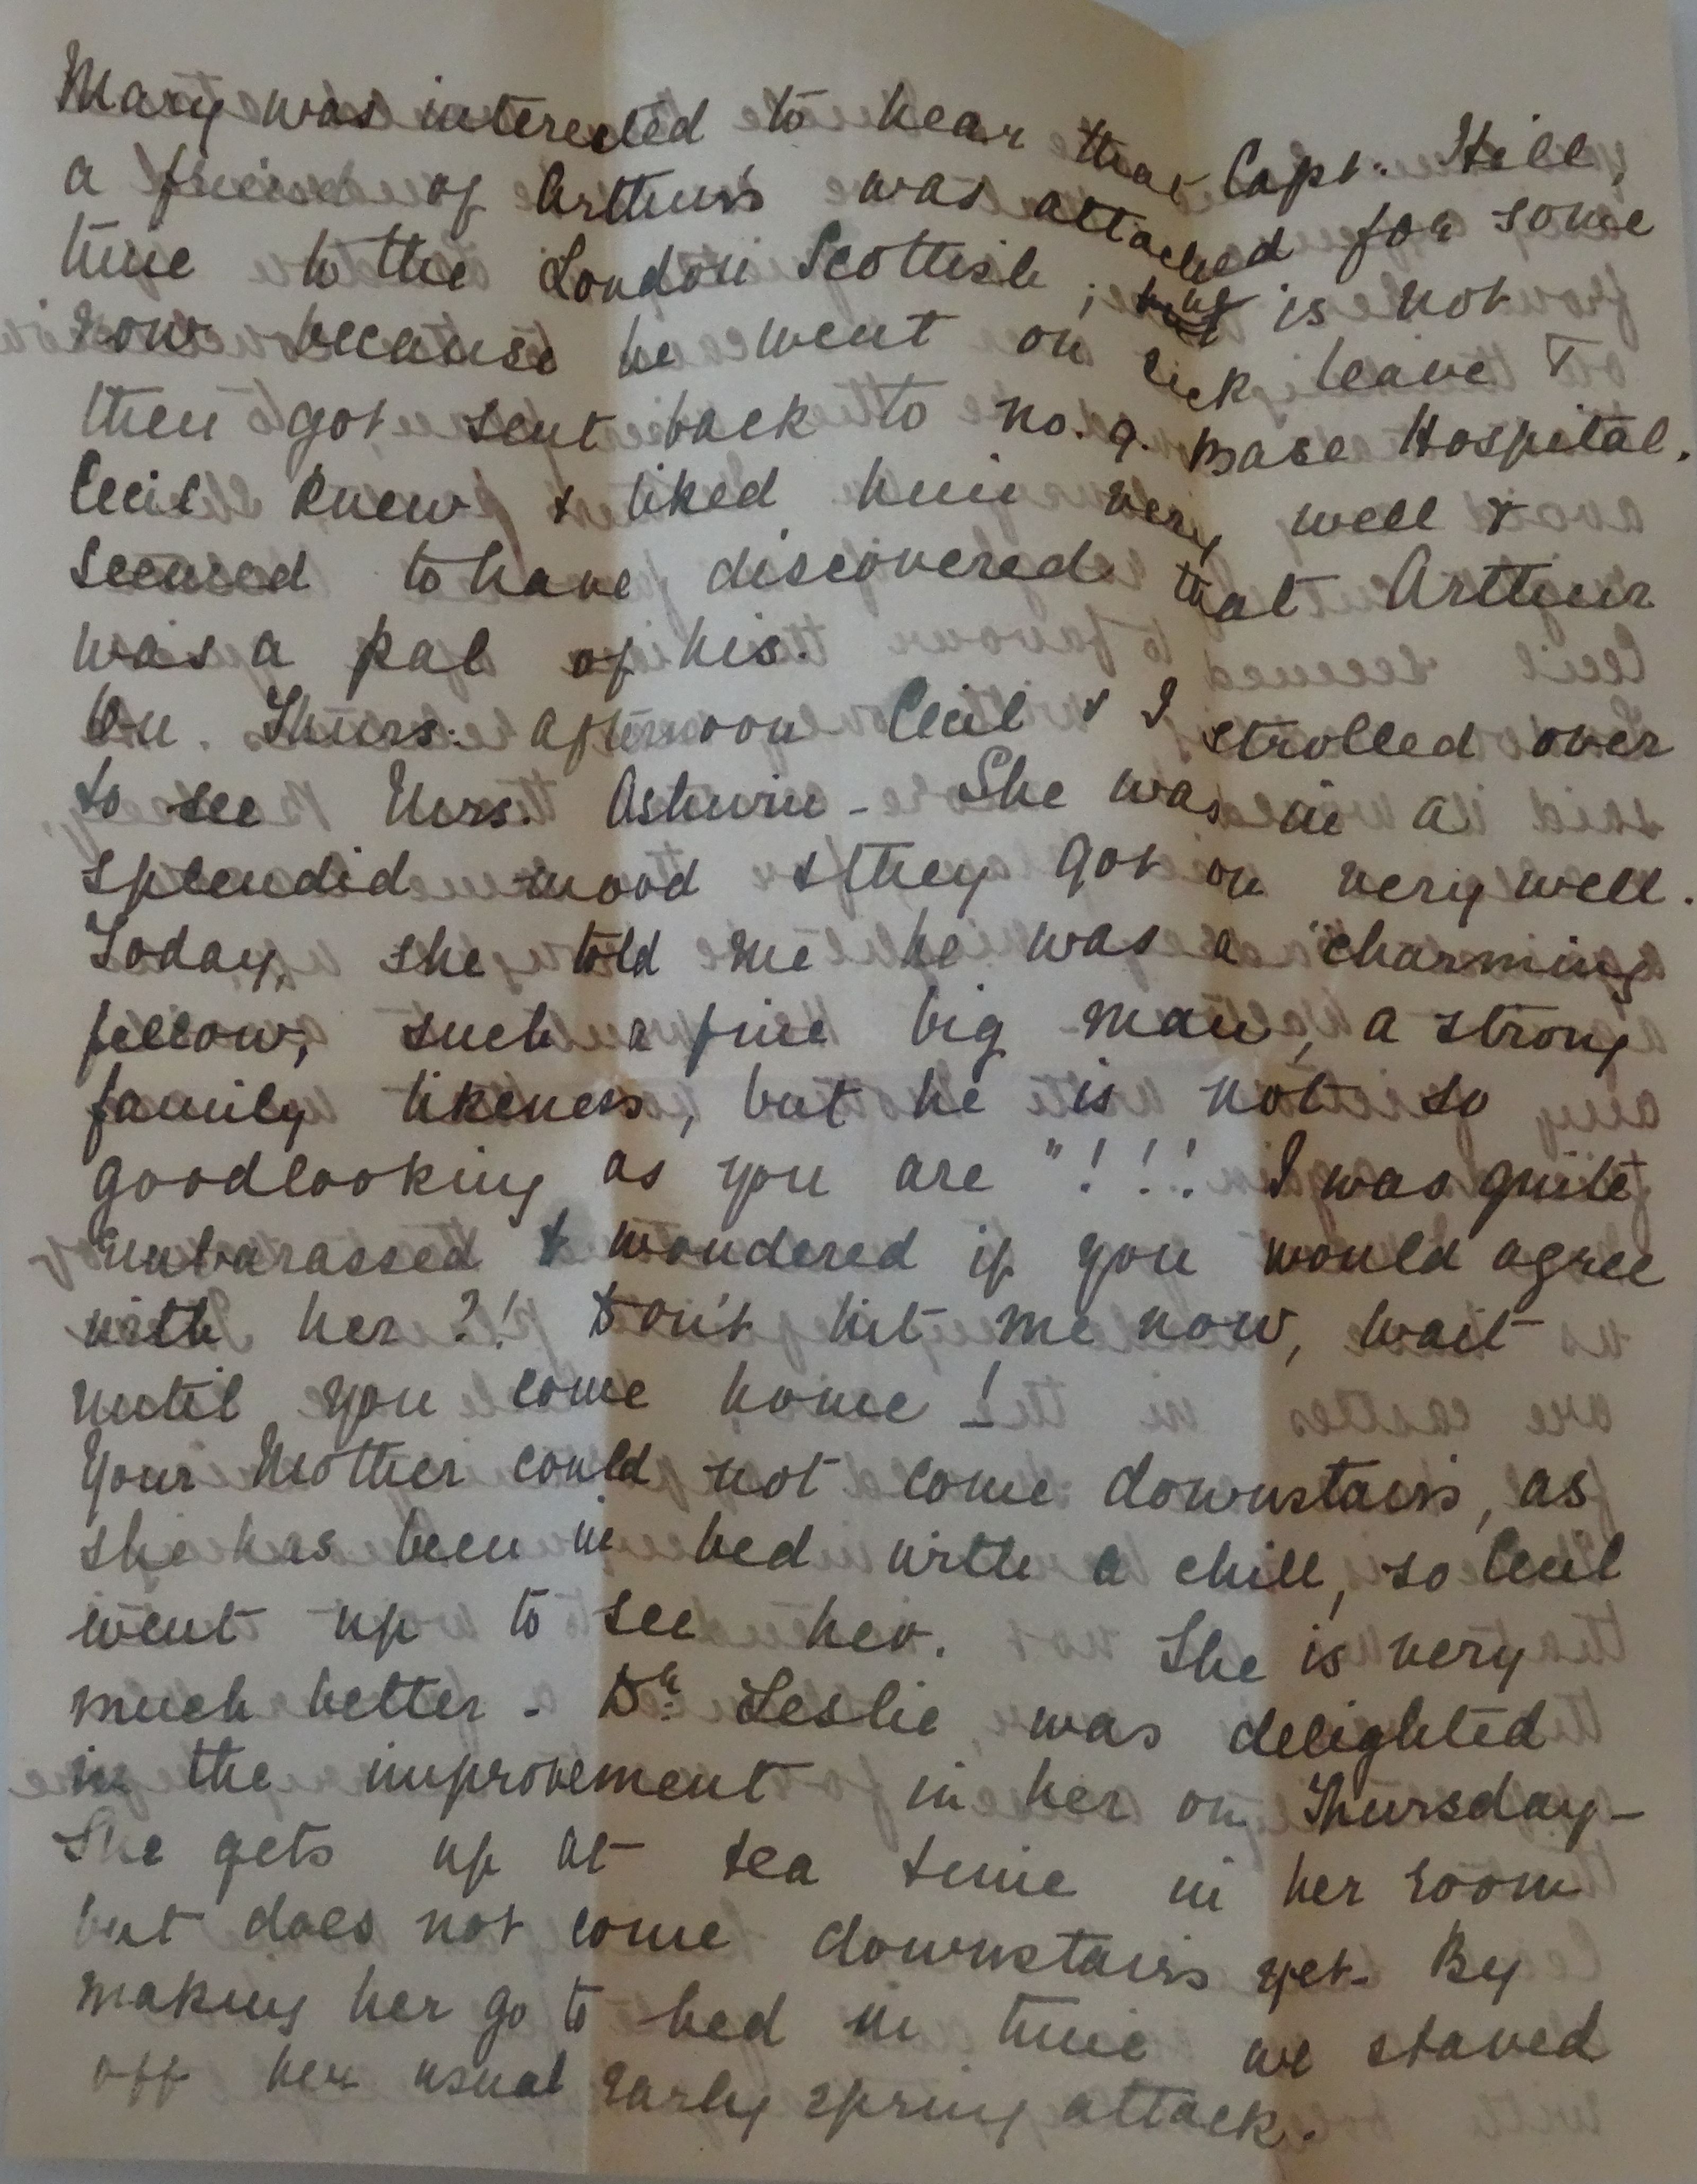 Mary was interested to hear that Capt. Hill,
a friend of Arthur's was attached for some
time to the London Scottish; is not
now because he went on sick leave &
then got sent back to No. 9. Base Hospital.
Cecil knew & liked him very well &
seemed to have discovered that Arthur
was a pal of his.
On. Thurs: afternoon Cecil & I strolled over
to see Mrs. Ashwin - She was in a
splendid mood & they got on very well.
Today, she told me he was a "charming
fellow, such a fine big man, a strong
family likeness, but he is not so
goodlooking as you are"!!! I was quite
embarassed & wondered if you would agree
with her?! Don't hit me now, wait
until you come home!
Your Mother could not come downstairs, as
she has been in bed with a chill, so Cecil
went up to see her. She is very
much better - Dr. Leslie was delighted
in the improvement in her on Thursday -
She gets up at tea time in her room
but does not come downstairs yet. By
making her go to bed in time we staved
off her usual early spring attack.